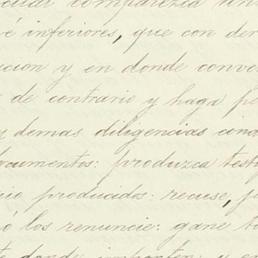 comparezca
é inferiores, que con der
cion y en donde conve
de contrario y haga pe
y demas diligencias cond
documentos: produzca test
cio producidos: recuse,
ó los renuncie: gane